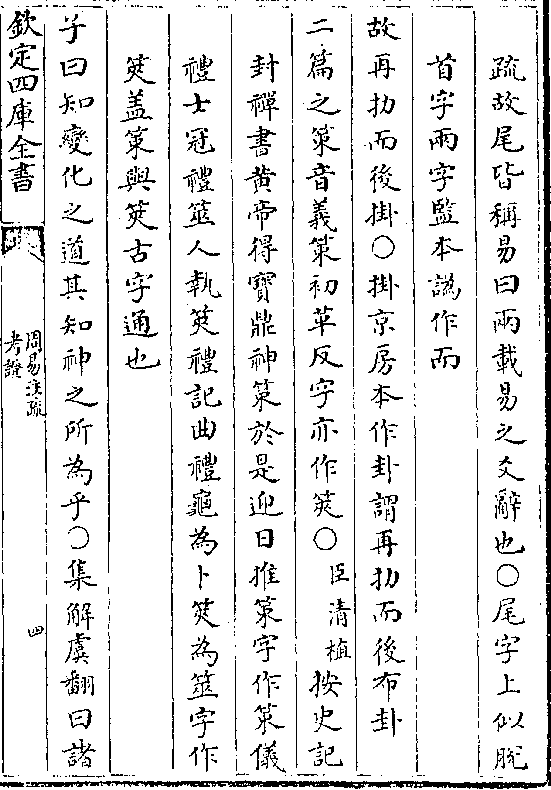 疏故尾皆稱易曰兩載易之爻辭也○尾字上似脫
首字兩字監本譌作而
故再扐而後掛○掛京房本作卦謂再扐而後布卦
二篇之策音義策初革反字亦作筴○臣清植按史記
封禪書黄帝得寶鼎神策於是迎日推策字作策儀
禮士冠禮筮人執筴禮記曲禮龜為卜筴為筮字作
筴盖策與筴古字通也
子曰知變化之道其知神之所為乎○集解虞翻曰諸
欽定四庫全書
周易注疏
考證
四